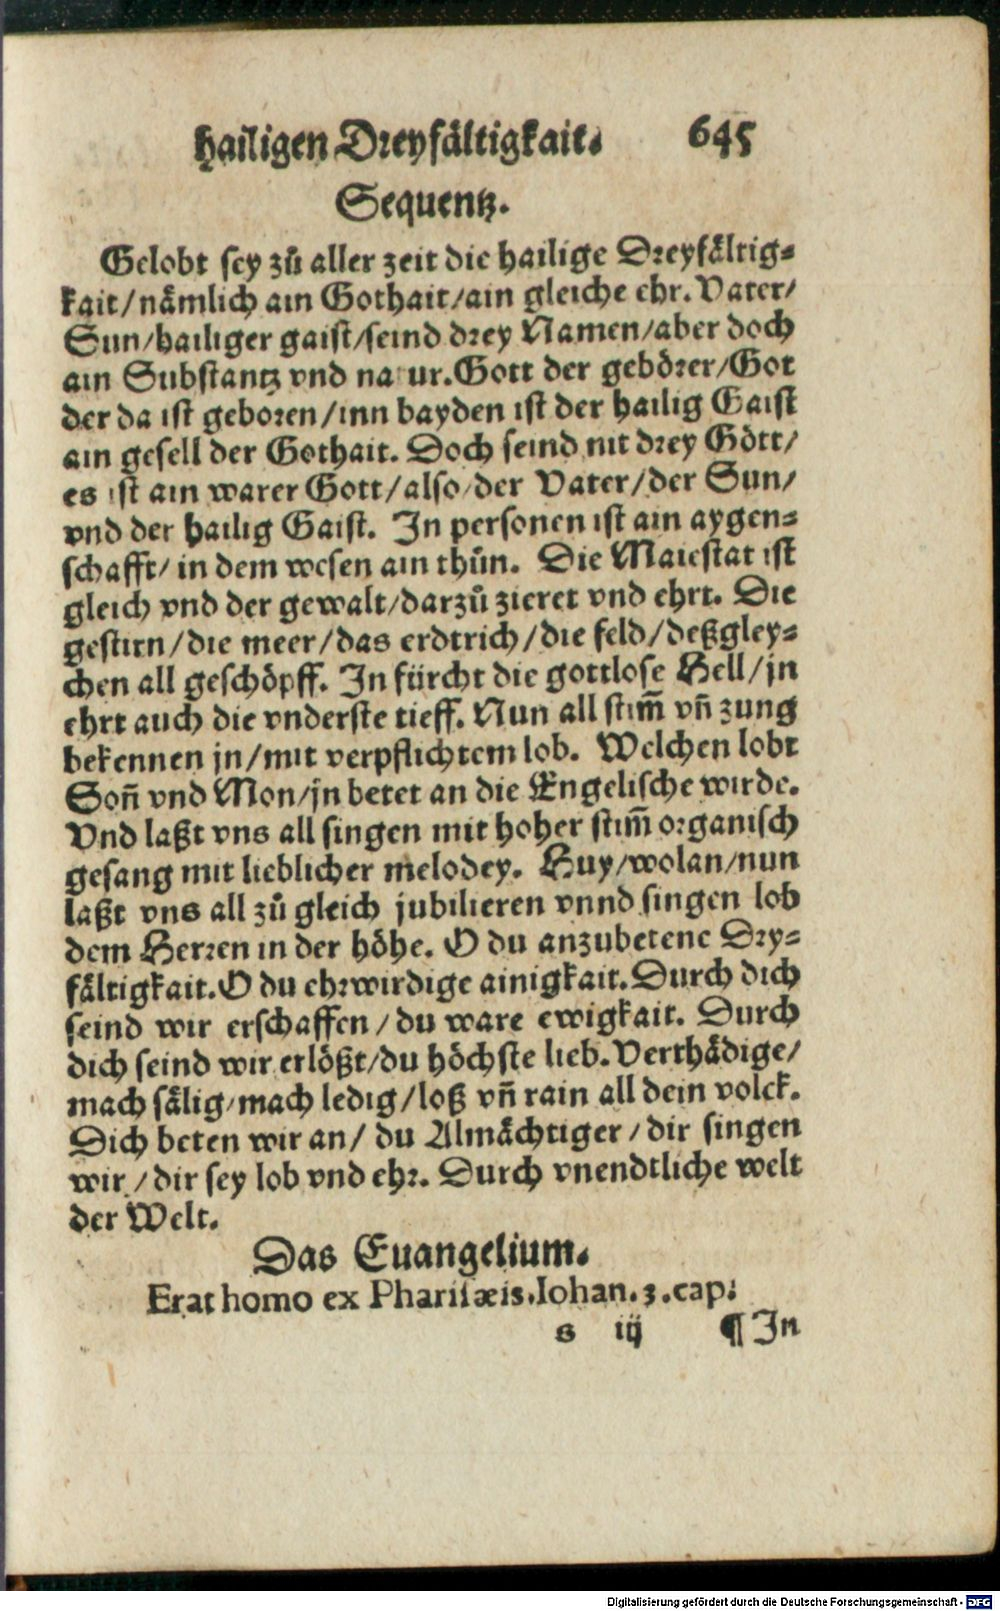 hailigen Dreyfältigkait. 645
Sequentz.
Gelobt sey zů aller zeit die hailige Dreyfältig⸗
kait/nämlich ain Gothait/ain gleiche ehr. Vater/
Sun/hailiger gaist/seind drey Namen/aber doch
ain Substantz vnd na ur. Gott der gebörer/Got
der da ist geboren/inn bayden ist der hailig Gaist
ain gesell der Gothait. Doch seind nit drey Gött/
es ist ain warer Gott/also/der Vater/der Sun/
vnd der hailig Gaist. In personen ist ain aygen⸗
schafft/in dem wesen ain thůn. Die Maiestat ist
gleich vnd der gewalt/darzů zieret vnd ehrt. Die
gestirn/die meer/das erdtrich/die feld/deßgley⸗
chen all geschöpff. In fürcht die gottlose Hell/jn
ehrt auch die vnderste tieff. Nun all stim̃ vñ zung
bekennen jn/mit verpflichtem lob. Welchen lobt
Soñ vnd Mon/jn betet an die Engelische wirde.
Vnd laßt vns all singen mit hoher stim̃ organisch
gesang mit lieblicher melodey. Huy/wolan/nun
laßt vns all zů gleich jubilieren vnnd singen lob
dem Herren in der höhe. O du anzubetene Dry⸗
fältigkait. O du ehrwirdige ainigkait. Durch dich
seind wir erschaffen/du ware ewigkait. Durch
dich seind wir erlößt/du höchste lieb. Verthädige/
mach sälig/mach ledig/loß vñ rain all dein volck.
Dich beten wir an/du Almächtiger/dir singen
wir/dir sey lob vnd ehr. Durch vnendtliche welt
der Welt.
Das Euangelium.
Erat homo ex Pharisæis. Iohan. 3. cap.
s iij ¶ In
Digitalisierung gefördert durch die Deutsche Forschungsgemeinschaft - DFG